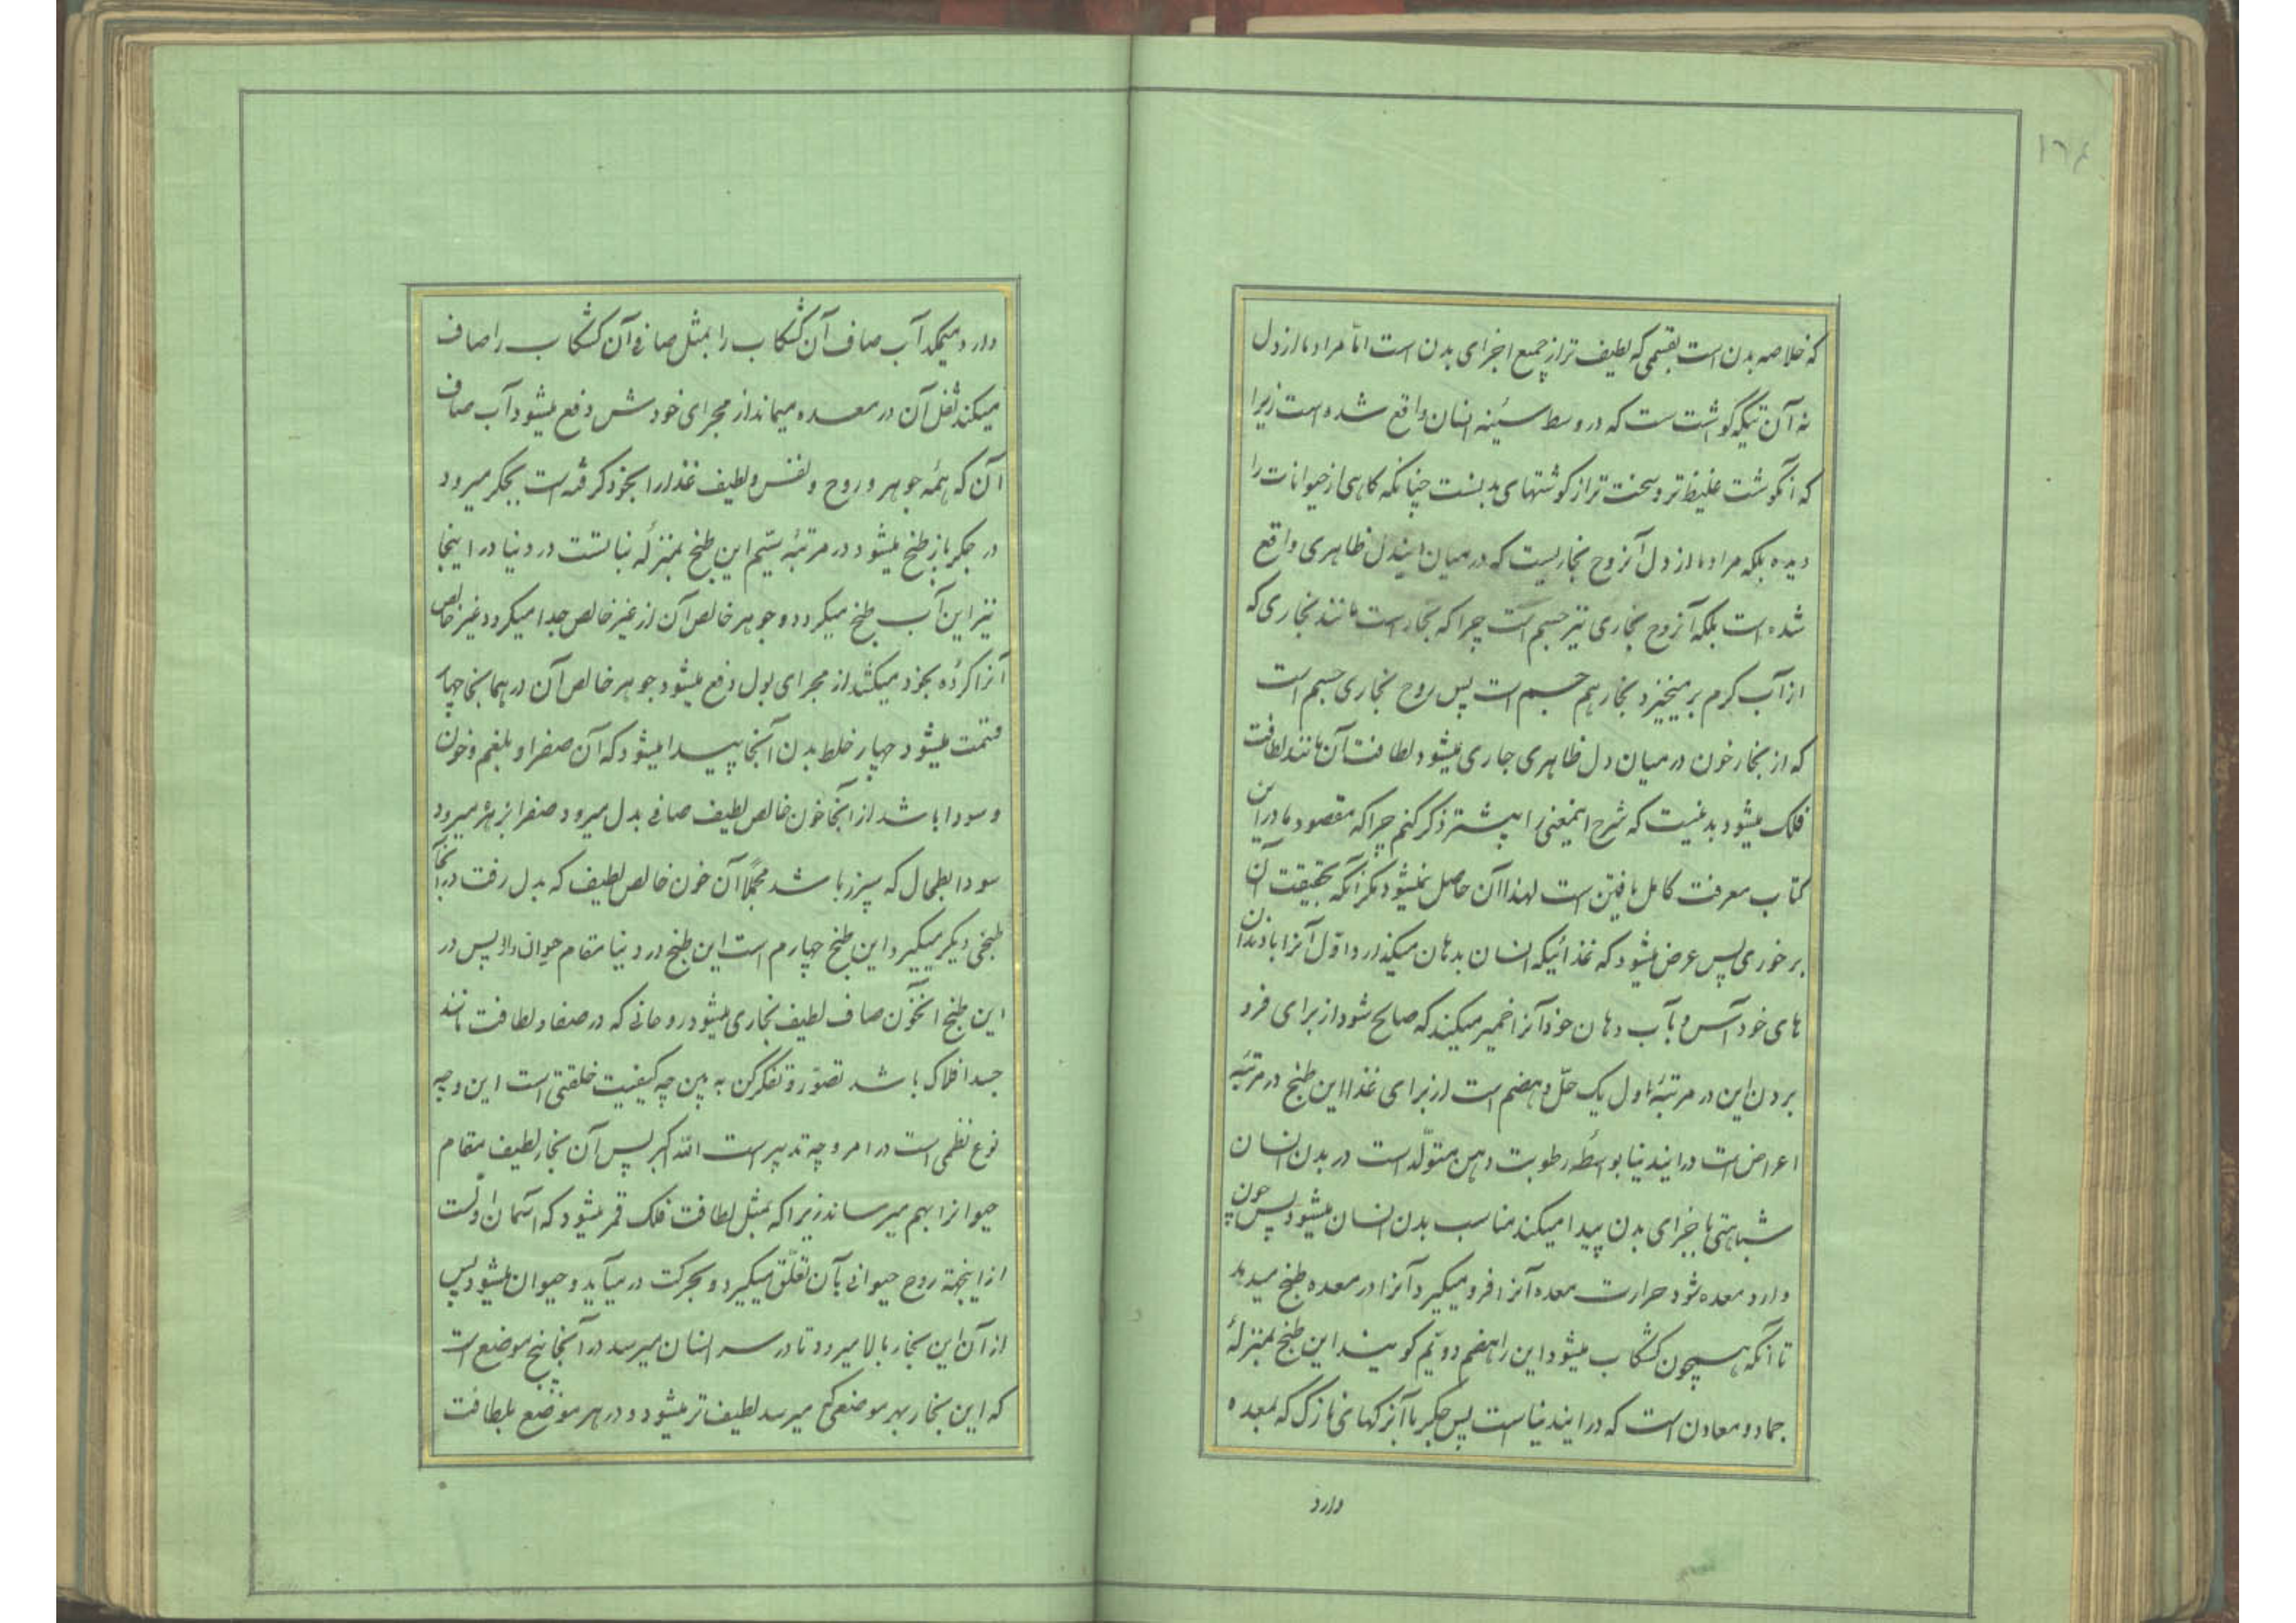 ۱۶۴
که خلاصه بدن است بقسمی که لطیف تر از جمیع اجزای بدن است امّا مراد ما از دل
نه آن تیکه گوشت ست که در وسط سینه انسان واقع شده است زیرا
که آنگوشت غلیظ تر و سخت تر از کوشتهای بدنست چنانکه کاهی از حیوانات را
دیده بلکه مراد ما از دل آنروح بخاریست که در میان ایندل ظاهری واقع
شده است بلکه آنروح بخاری نیز جسم است چرا که بخار است مانند بخاری که
از آب کرم بر میخیزد بخار هم جسم است پس روح بخاری جسم است
که از بخار خون در میان دل ظاهری جاری میشود لطافت آن مانند لطافت
فلک میشود بد نیست که شرح اینمعنی را بیشتر ذکر کنم چرا که مقصود ما در این
کتاب معرفت کامل یافتن است لهذا آن حاصل نمیشود مکر آنکه بحقیقت آن
برخوری پس عرض میشود که غذائیکه انسان بدهان میکذارد اوّل آنرا با دندان
های خود آس و بآب دهان خود آنرا خمیر میکند که صالح شود از برای فرو
بردن این در مرتبۀ اول یک حلّ و هضم است از برای غذا این طبخ در مرتبۀ
اعراض است در ایندنیا بواسطۀ رطوبت دهن متولّد است در بدن انسان
شباهتی باجزای بدن پیدا میکند مناسب بدن انسان میشود پس چون
وارد معده شود حرارت معده آنرا فرو میکیرد و آنرا در معده طبخ میدهد
تا آنکه همچون کشکاب میشود این را هضم دویّم کویند این طبخ بمنزلۀ
جماد و معادن است که در ایندنیاست پس جکر با آنرکهای نازک که بمعده
دارد
دارد میمکد آب صاف آن کشکاب را بمثل صافی آن کشکاب را صاف
میکند ثفل آن در معده میماند از مجرای خودش دفع میشود آب صاف
آن که همۀ جوهر و روح و نفس و لطیف غذا را بخود کرفته است بجکر میرود
در جکر باز طبخ میشود در مرتبۀ سیّم این طبخ بمنزلۀ نباتست در دنیا در اینجا
نیز این آب طبخ میکردد و جوهر خالص آن از غیر خالص جدا میکردد غیر خالص
آنرا کرده بخود میکشد از مجرای بول دفع میشود جوهر خالص آن در همانجا چهار
قسمت میشود چهار خلط بدن آنجا پیدا میشود که آن صفرا و بلغم و خون
و سودا باشد از آنجا خون خالص لطیف صافی بدل میرود صفرا بزهره میرود
سودا بطحال که سپرز باشد مجملاً آن خون خالص لطیف که بدل رفت در آنجا
طبخی دیکر میکیرد این طبخ چهارم است این طبخ در دنیا مقام حیوان دارد پس در
این طبخ آنخون صاف لطیف بخاری میشود روحانی که در صفا و لطافت مانند
جسد افلاک باشد تصوّر و تفکر کن به بین چه کیفیت خلقتی است این و چه
نوع نظمی است در امر و چه تدبیر است الله اکبر پس آن بخار لطیف مقام
حیوانرا بهم میرساند زیرا که بمثل لطافت فلک قمر میشود که آسمان اولست
از اینجهة روح حیوانی بآن تعلّق میکیرد و بحرکت در میآید و حیوان میشود پس
از آن این بخار بالا میرود تا در سر انسان میرسد در آنجا پنج موضع است
که این بخار بهر موضعی که میرسد لطیف تر میشود و در هر موضع بلطافت